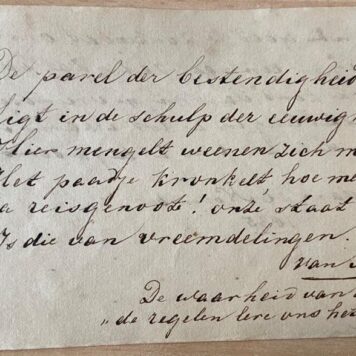 De parel der bestendigheid
ligt in de schulp der eeuwig
Hier mengelt weenen zich m
Het paadje kronkelt, hoe me
reisgenoot! onze staat
Is die van vreemdelingen.
van
De waarheid van
„de regelen leve ons he